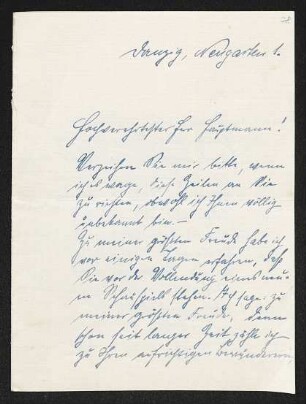 Danzig, Neugarten 1.
Hochverehrtester Herr Hauptmann!
Verzeihen Sie mir bitte, wenn
ich es wage, diese Zeilen an Sie
zu richten, obwohl ich Ihnen völlig
unbekannt bin –
Zu meiner größten Freude hab ich
vor einigen Tagen erfahren, daß
Sie vor der Vollendung eines neu-
en Schauspiels stehen. Ich sage: zu
meiner größten Freude, denn
schon seit langer Zeit zähle ich
zu Ihren aufrichtigen Bewunderern,